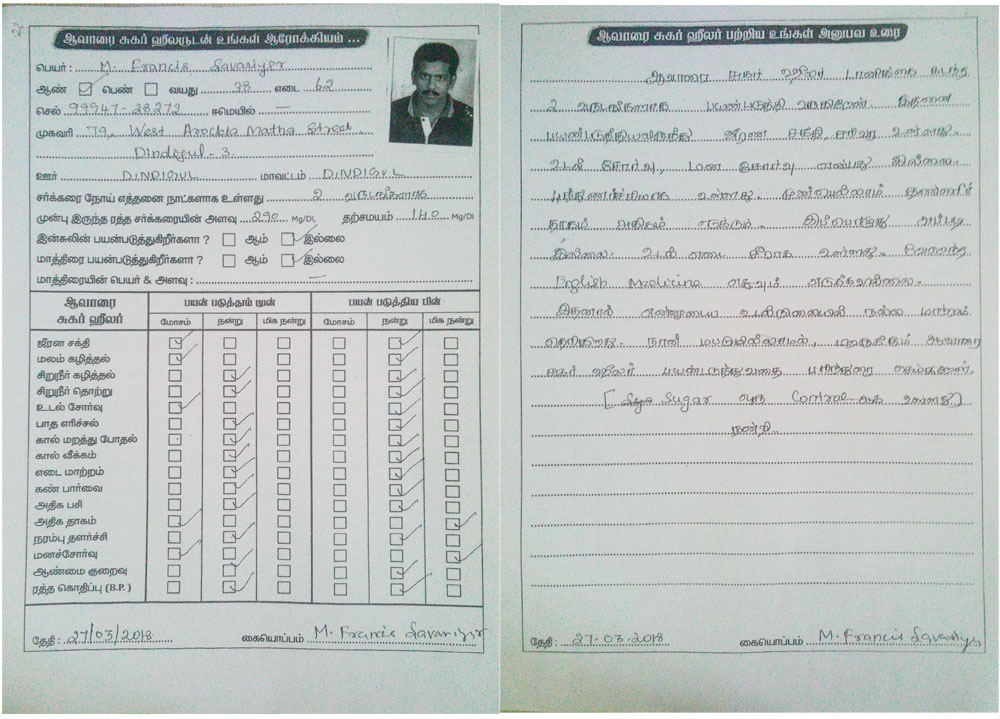 ஆவாரை சுகர் ஹீலருடன் உங்கள் ஆரோக்கியம் ...
பெயர் : M. Francis Savariyer
ஆண் பெண் வயது 38 எடை 62
செல் 99947-28272 ஈமெயில் —
முகவரி 79, West Arockia Matha Street,
Dindigul - 3.
ஊர் DINDIGUL மாவட்டம் DINDIGUL
சர்க்கரை நோய் எத்தனை நாட்களாக உள்ளது 2 வருடங்களாக
முன்பு இருந்த ரத்த சர்க்கரையின் அளவு 290 Mg/Dl, தற்சமயம் 140 Mg/Dl
இன்சுலின் பயன்படுத்துகிறீர்களா ? ஆம் இல்லை
மாத்திரை பயன்படுத்துகிறீர்களா ? ஆம் இல்லை
மாத்திரையின் பெயர் & அளவு : —
ஆவாரை சுகர் ஹீலர் பயன் படுத்தாம் முன் பயன் படுத்திய பின்
மோசம் நன்று மிக நன்று மோசம் நன்று மிக நன்று
ஜீரன சக்தி
மலம் கழித்தல்
சிறுநீர் கழித்தல்
சிறுநீர் தொற்று
உடல் சோர்வு
பாத எரிச்சல்
கால் மறத்து போதல்
கால் வீக்கம்
எடை மாற்றம்
கண் பார்வை
அதிக பசி
அதிக தாகம்
நரம்பு தளர்ச்சி
மனச்சோர்வு
ஆண்மை குறைவு
ரத்த கொதிப்பு (B.P.)
தேதி : 27/03/2018 கையொப்பம் M. Francis Savariyer
ஆவாரை சுகர் ஹீலர் பற்றிய உங்கள் அனுபவ உரை
ஆவாரை சுகர் ஹீலர் கடந்த
2 வருடங்களாக பயண்படுத்தி வருகிறேன். இதனை
ஜீரண சக்தி, சீராக உள்ளது.
உடல் சோர்வு, மன சோர்வு என்பது இல்லை.
உள்ளது. முன்பெல்லாம் தண்ணீர்
தாகம் அதிகம் எடுக்கும். இப்பொழுது அப்படி
இல்லை. உடல் எடை சீராக உள்ளது. வேறெந்த
English Medicine எதுவும் எடுக்கவில்லை.
இதனால் என்னுடைய உடல்நிலையில் நல்ல மாற்றம்
தெரிகிறது. நான் ஆவாரை
சுகர் ஹீலர் பயண்படுத்துவதை பரிந்துரை செய்கிறேன்.
[Sugar Control ஆக உள்ளது]
நன்றி.
தேதி : 27.03.2018 கையொப்பம் M. Francis Savariyer